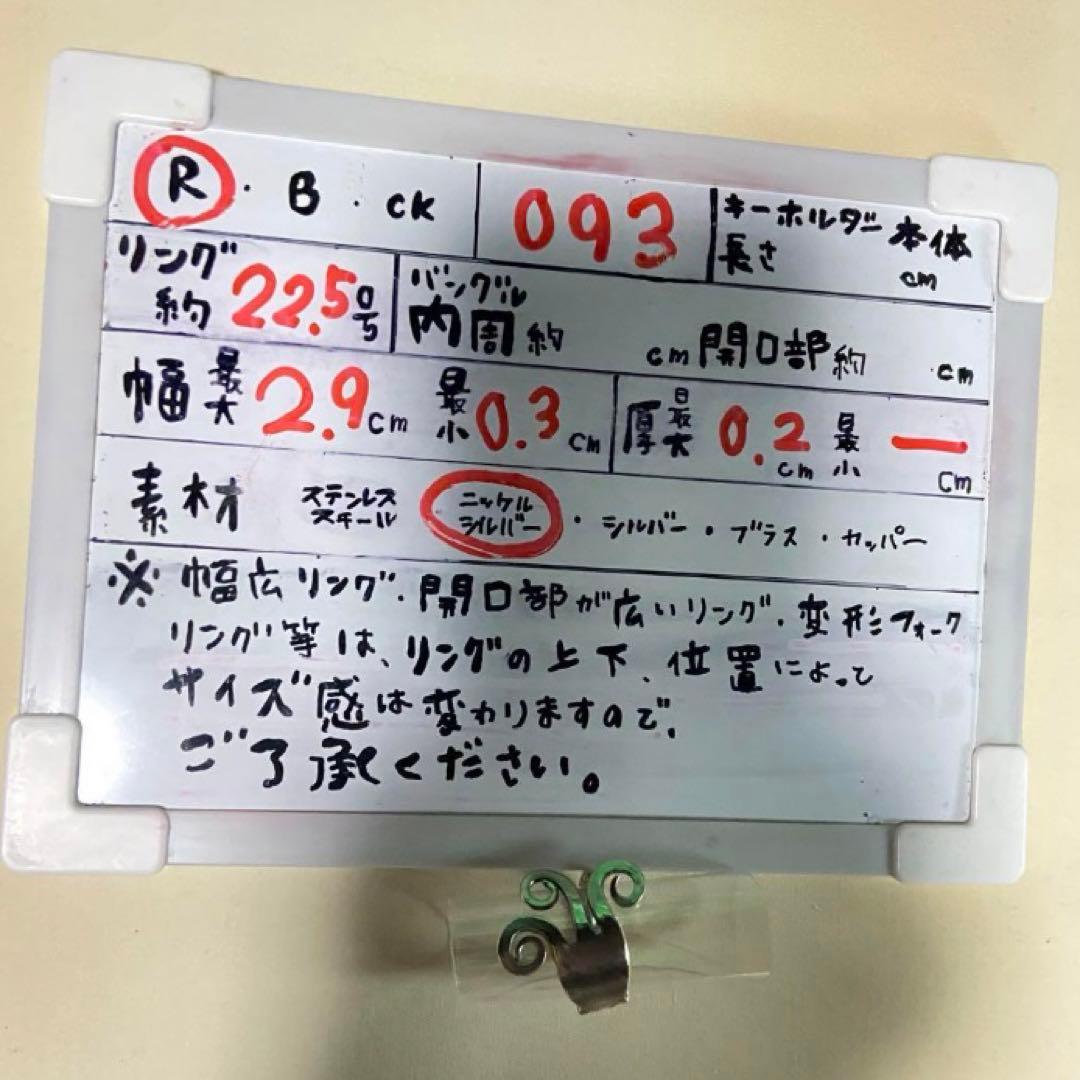 R・B・CK
093
キーホルダー 本体
長さ cm
リング
約 22.5号
バングル
内周約 cm 開口部約 cm
幅 最大 2.9cm 最小 0.3cm
厚 最大 0.2cm 最小 ー cm
素材 ステンレススチール ニッケルシルバー・シルバー・ブラス・カッパー
※幅広リング・開口部が広いリング・変形フォーク
リング等は、リングの上下、位置によって
サイズ感は変わりますので、
ご了承ください。